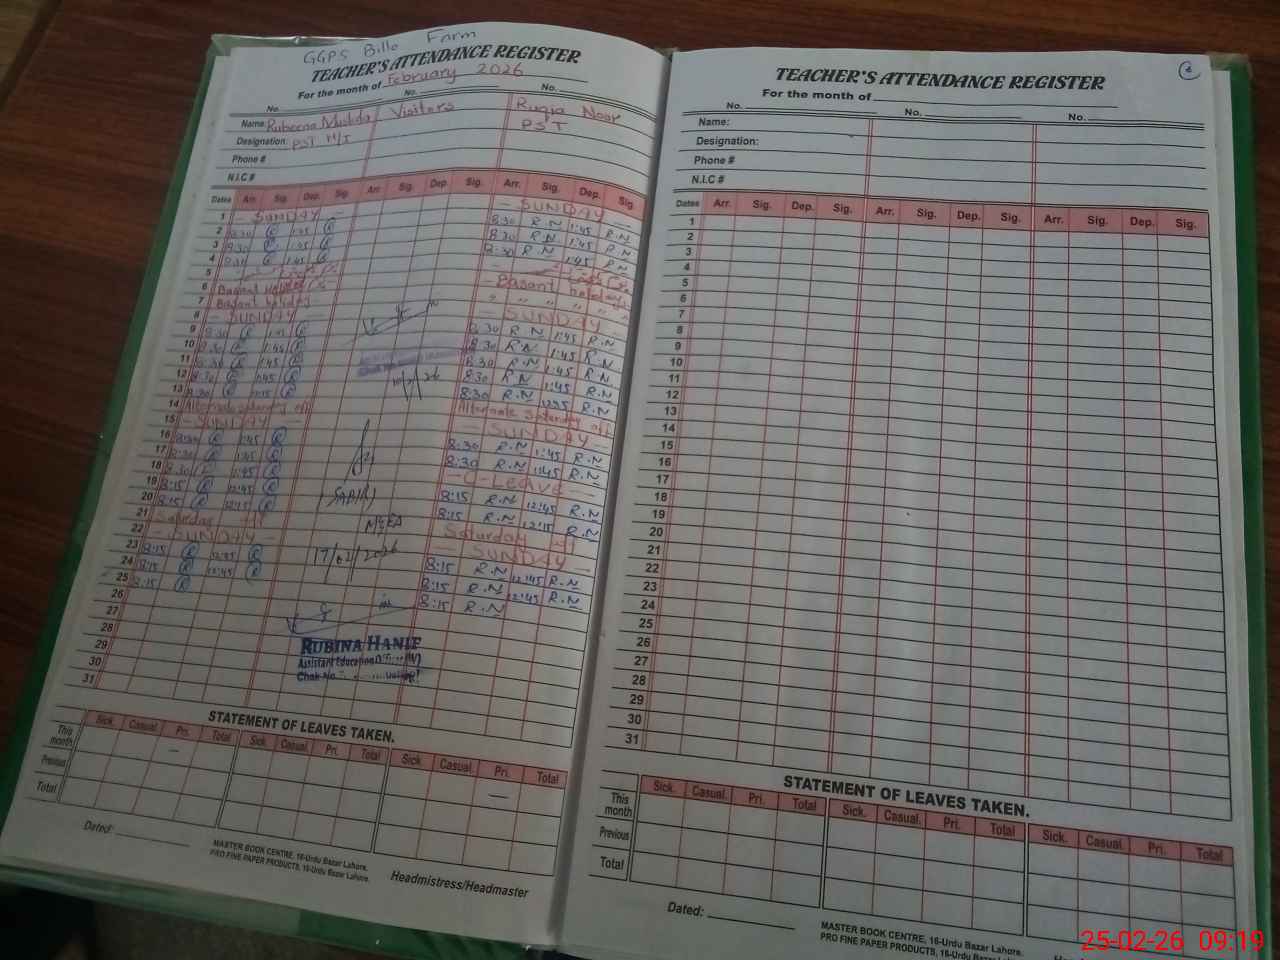 GGPS Billo Farm
TEACHER'S ATTENDANCE REGISTER
For the month of February 2026
No. No. No.
Name: Rubeena Mushtaq Visitors Ruqia Noor
Designation: PST PST
Phone #
N.I.C #
Dates Arr. Sig. Dep. Sig. Arr. Sig. Dep. Sig. Arr. Sig. Dep. Sig.
1 - SUNDAY - - SUNDAY -
2 8:30 1:45 8:30 R.N 1:45 R.N
3 8:30 1:45 8:30 R.N 1:45 R.N
4 8:30 1:45 8:30 R.N 1:45 R.N
5
6 Basant holiday - Basant holiday
7 Basant holiday " " " "
8 - SUNDAY - - SUNDAY -
9 8:30 8:30 R.N 1:45 R.N
10 8:30 1:45 8:30 R.N 1:45 R.N
11 8:30 1:45 8:30 R.N 1:45 R.N
12 8:30 1:45 8:30 R.N 1:45 R.N
13 8:30 8:30 R.N R.N
14 Alternate Saturday off Alternate Saturday off
15 - SUNDAY - - SUNDAY -
16 8:30 1:45 8:30 R.N 1:45 R.N
17 8:30 1:45 8:30 R.N 1:45 R.N
18 8:30 1:45 - C-Leave -
19 8:15 12:45 8:15 R.N 12:45 R.N
20 8:15 12:15 8:15 R.N 12:15 R.N
21 Saturday off Saturday off
22 - SUNDAY - - SUNDAY -
23 8:15 8:15 R.N 12:45 R.N
24 8:15 12:45 8:15 R.N 12:45 R.N
25 8:15 8:15 R.N
26
27
28
29
30
31
(SABIR)
MEA
17/02/2026
RUBINA HANIF
Assistant Education
Chak No.
STATEMENT OF LEAVES TAKEN.
Sick. Casual. Pri. Total Sick. Casual. Pri. Total Sick. Casual. Pri. Total
This month
Previous
Total
Dated:
MASTER BOOK CENTRE, 16-Urdu Bazar Lahore.
PRO FINE PAPER PRODUCTS, 16-Urdu Bazar Lahore.
Headmistress/Headmaster
2
TEACHER'S ATTENDANCE REGISTER
For the month of
No. No. No.
Name:
Designation:
Phone #
N.I.C #
Dates Arr. Sig. Dep. Sig. Arr. Sig. Dep. Sig. Arr. Sig. Dep. Sig.
1
2
3
4
5
6
7
8
9
10
11
12
13
14
15
16
17
18
19
20
21
22
23
24
25
26
27
28
29
30
31
STATEMENT OF LEAVES TAKEN.
Sick. Casual. Pri. Total Sick. Casual. Pri. Total Sick. Casual. Pri. Total
This month
Previous
Total
Dated:
MASTER BOOK CENTRE, 16-Urdu Bazar Lahore.
PRO FINE PAPER PRODUCTS, 16-Urdu Bazar Lahore.
25-02-26 09:19